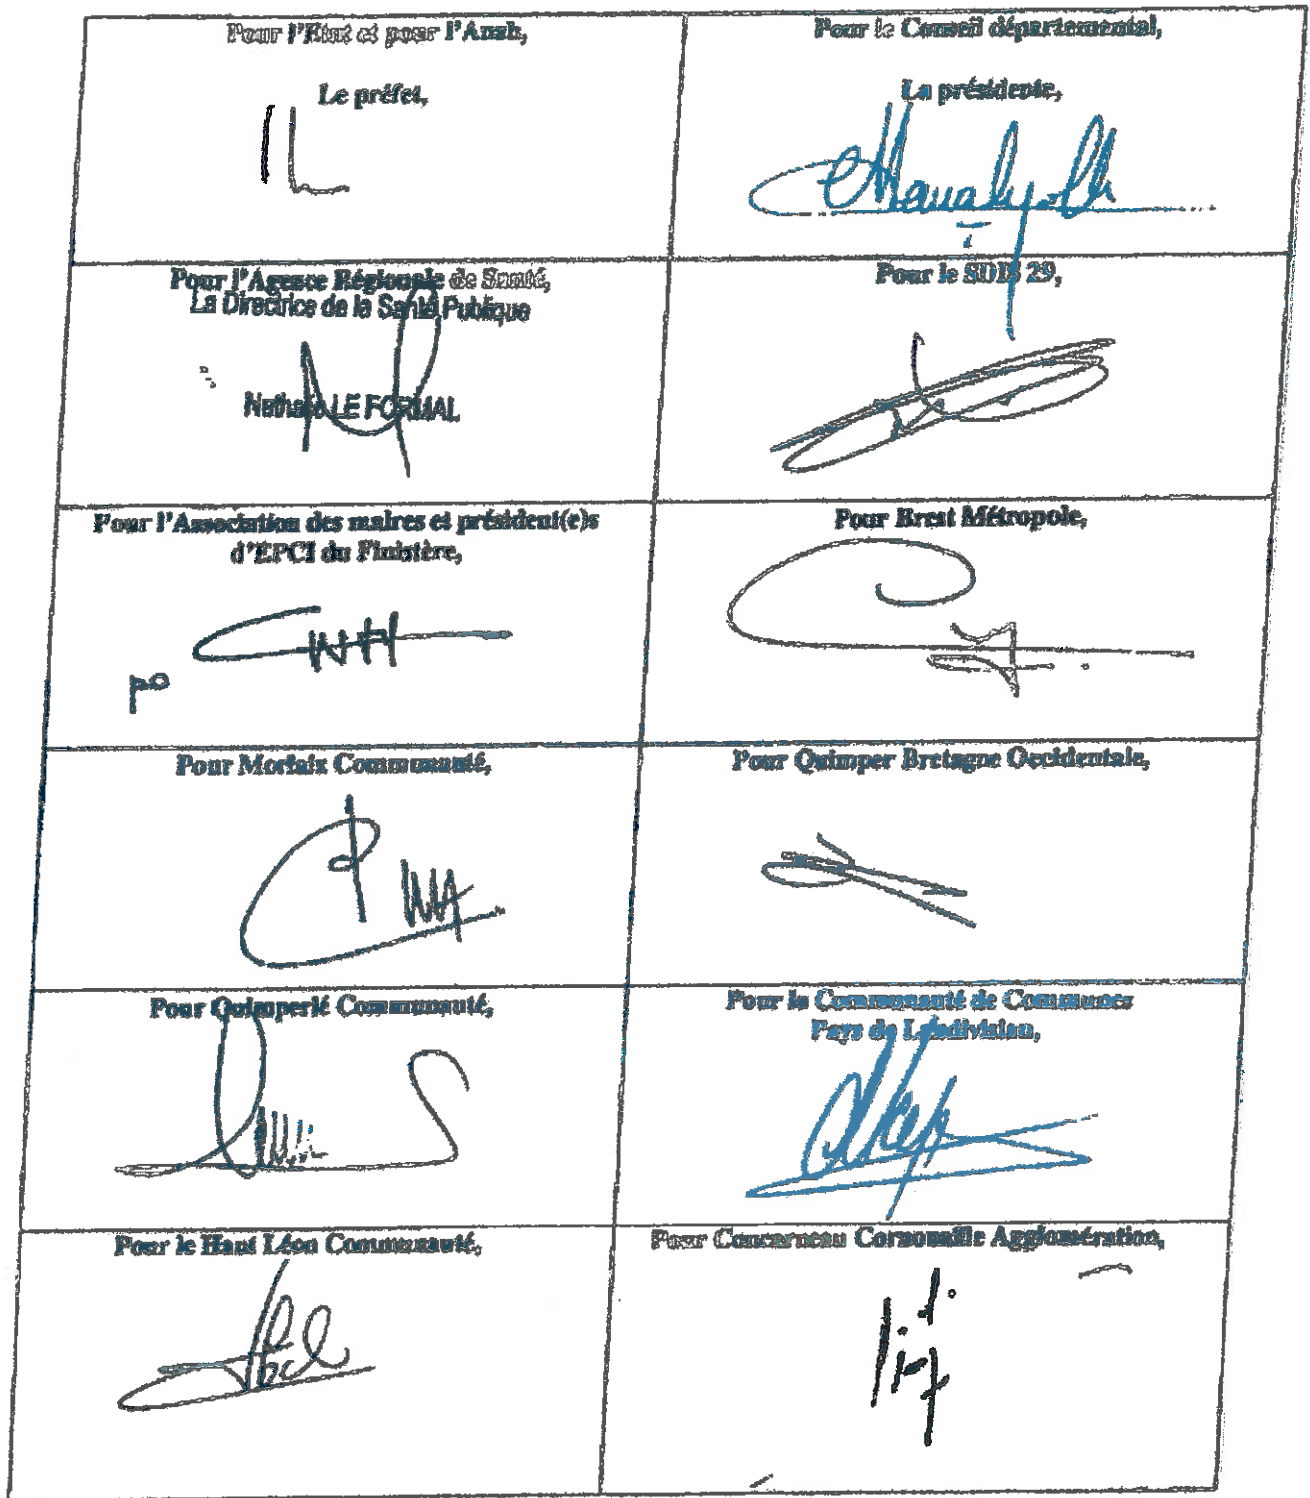 Pour l'Etat et pour l'Anah,
Le préfet,
Pour le Conseil départemental,
La présidente,
Pour l'Agence Régionale de Santé,
La Directrice de la Santé Publique
Nathalie LE FORMAL
Pour le SDIS 29,
Pour l'Association des maires et président(e)s
d'EPCI du Finistère,
po
Pour Brest Métropole,
Pour Morlaix Communauté,
Pour Quimper Bretagne Occidentale,
Pour Quimperlé Communauté,
Pour la Communauté de Communes
Pays de Landivisiau,
Pour le Haut Léon Communauté,
Pour Concarneau Cornouaille Agglomération,